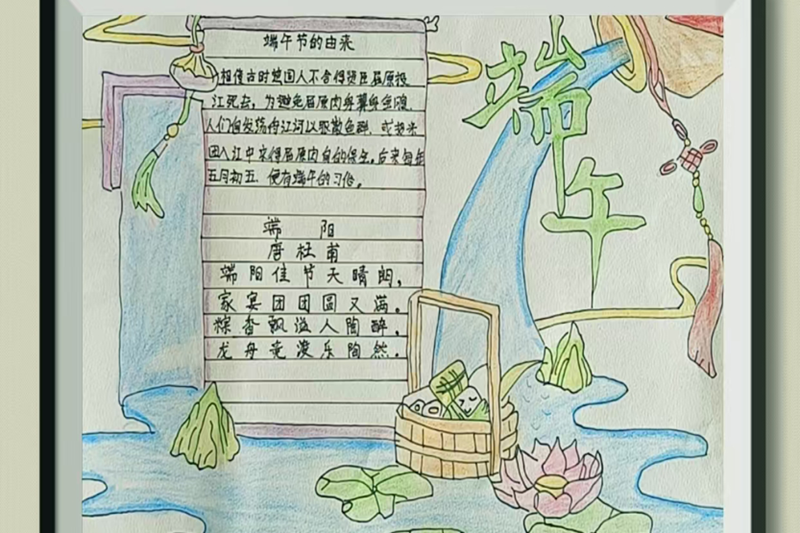 端午节的由来
相信古时楚国人不舍得贤臣屈原投
江死去，为避免屈原肉身葬身鱼腹
人们自发荡舟江河以驱散鱼群，或投米
团入江中求得屈原肉身的保全。后来每年
五月初五，便有端午的习俗。
端阳
唐杜甫
端阳佳节天晴朗，
家宴团团圆又满。
粽香飘溢人陶醉，
龙舟竞渡乐陶然。
端午